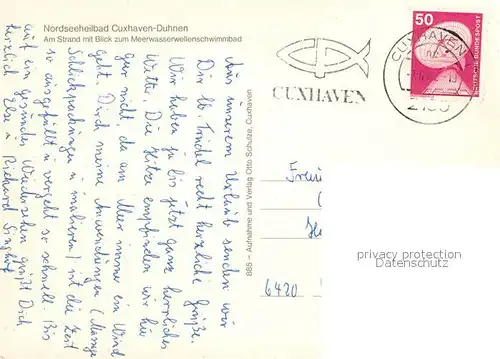 Nordseeheilbad Cuxhaven-Duhnen
Am Strand mit Blick zum Meerwasserwellenschwimmbad
Aus unserem Urlaub senden wir
Dir lb. Trudel recht herzliche Grüße.
Wir haben ja bis jetzt ganz herrliches
Wetter. Die Hitze empfinden wir hier
gar nicht da am Meer immer ein Wind
geht. Durch meine Anwendungen (Massage
Schlickpackungen u. inhalieren) ist die Zeit
so ausgefüllt u. vergeht so schnell. Bis
auf ein gesundes Wiedersehen grüßt Dich
herzlich Else u. Richard
885 – Aufnahme und Verlag Otto Schulze, Cuxhaven
CUXHAVEN
CUXHAVEN
50
DEUTSCHE BUNDESPOST
6420
privacy protection
Datenschutz